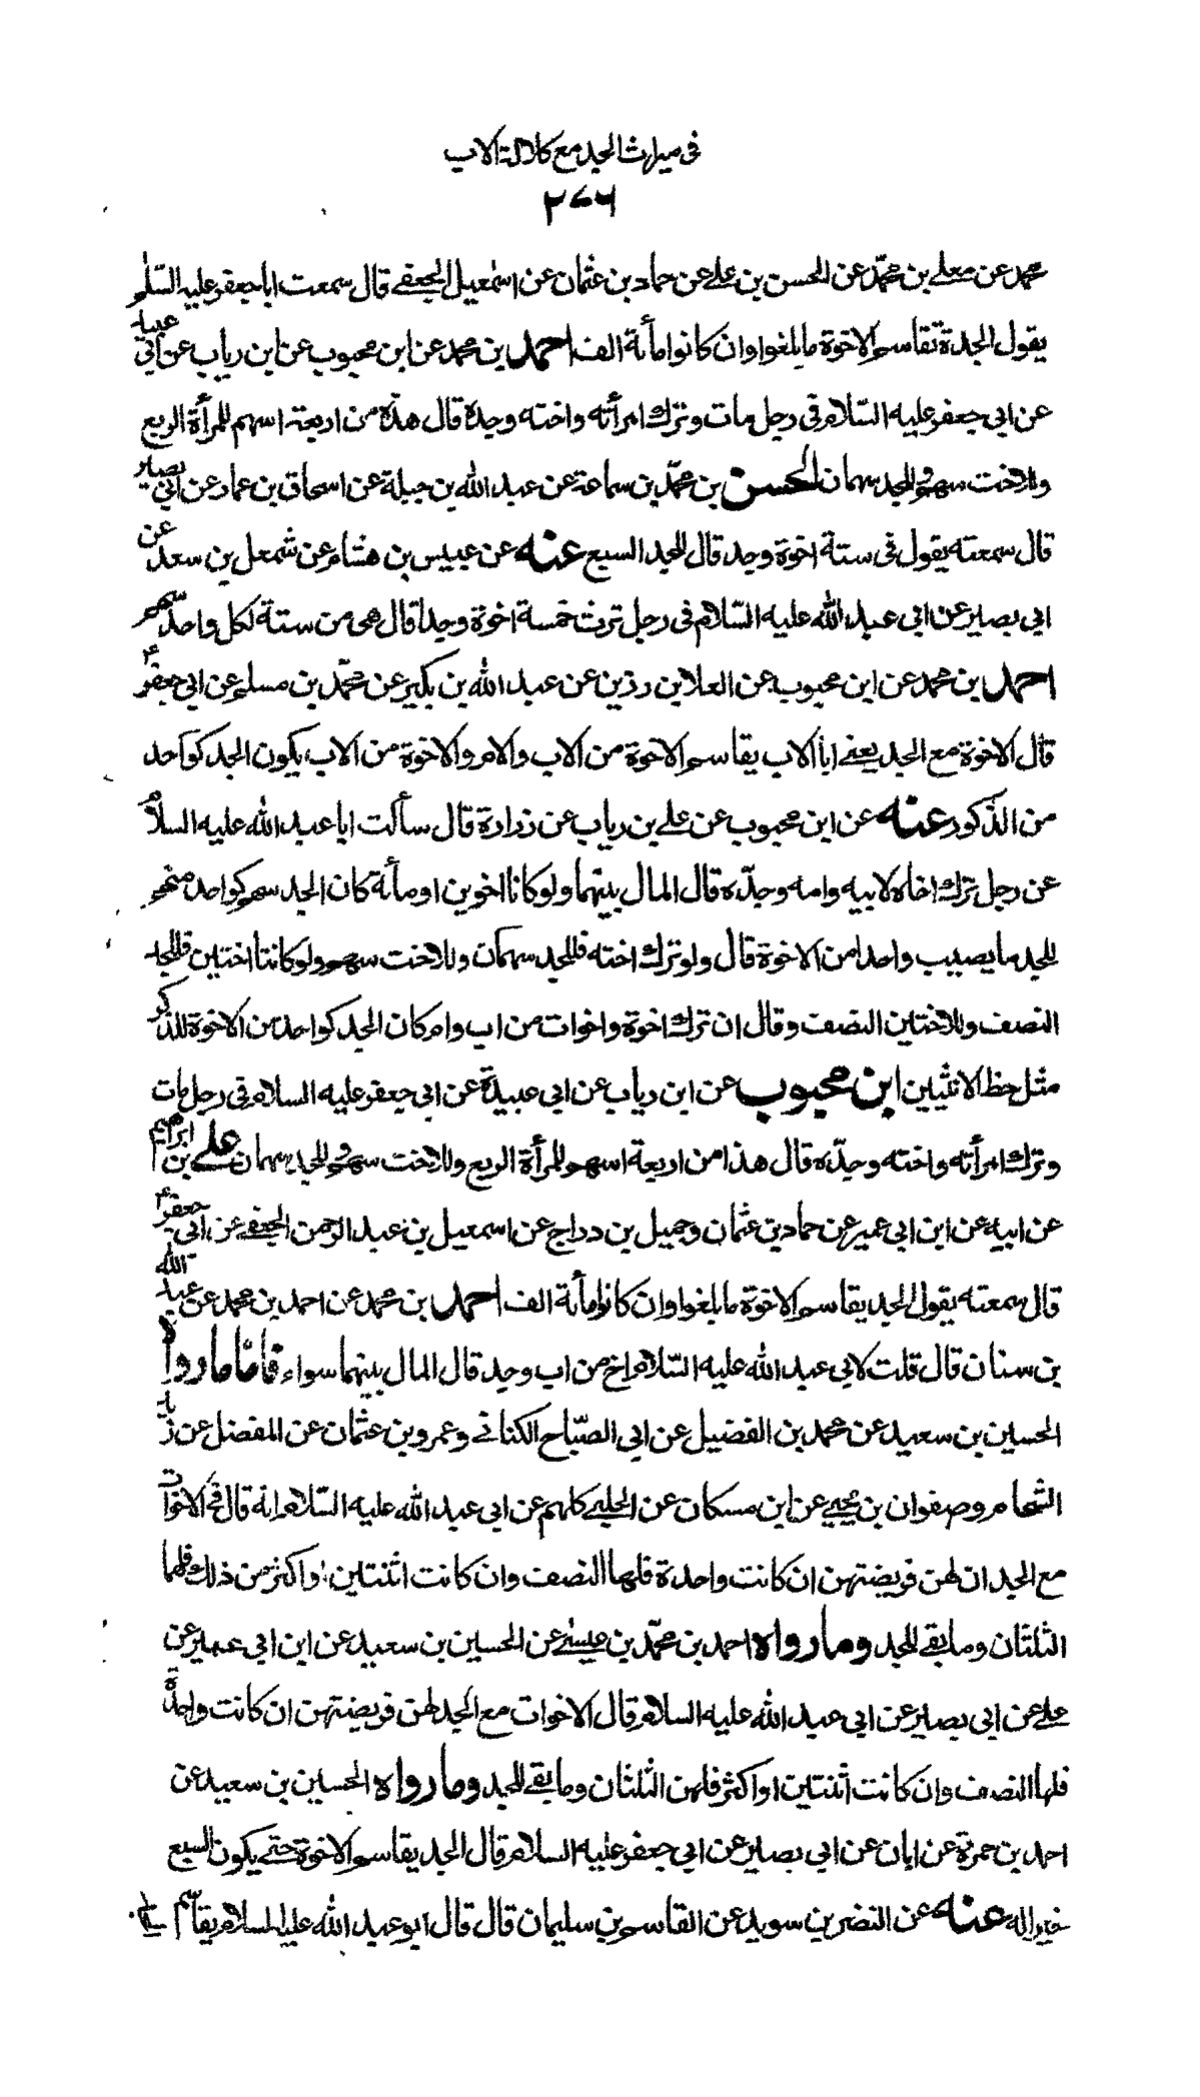 في ميراث الجد مع كلالة الاب
٢٧٦
محمد عن معلى بن محمّد عن الحسن بن علي عن حماد بن عثمان عن اسمعيل الجعفى قال سمعت ابا جعفر عليه السّلم
يقول الجد يقاسم الاخوة ما بلغوا وان كانوا مأئة الف احمد بن محمد عن ابن محبوب عن ابن رياب عن ابي عبيدة
عن ابي جعفر عليه السّلام في رجل مات وترك امرأته واخته وجده قال هذه من اربعة اسهم للمرأة الربع
وللاخت سهم وللجد سهمان الحسن بن محمّد بن سماعة عن عبد الله بن جبلة عن اسحاق بن عمار عن ابي بصير
قال سمعته يقول في ستة اخوة وجد قال للجد السبع عنه عن عبيس بن هشام عن مشمعل بن سعد عن
ابي بصير عن ابي عبد الله عليه السّلام في رجل ترك خمسة اخوة وجدا قال هي من ستة لكل واحد سهم
احمد بن محمد عن ابن محبوب عن العلا بن رزين عن عبد الله بن بكير عن محمّد بن مسلم عن ابي جعفر ع
قال الاخوة مع الجد يعنى ابا الاب يقاسم الاخوة من الاب والام والاخوة من الاب يكون الجد كواحد
من الذّكور عنه عن ابن محبوب عن على بن رياب عن زرارة قال سألت ابا عبد الله عليه السلام
عن رجل ترك اخاه لابيه وامه وجدّه قال المال بينهما ولو كانا اخوين او مأئة كان الجد معهم كواحد منهم
للجد ما يصيب واحدا من الاخوة قال ولو ترك اخته فللجد سهمان وللاخت سهم ولو كانتا اختين فللجد
النصف وللاختين النصف وقال ان ترك اخوة واخوات من اب وام كان الجد كواحد من الاخوة للذكر
مثل حظ الانثيين ابن محبوب عن ابن رياب عن ابي عبيدة عن ابي جعفر عليه السلام في رجل مات
وترك امرأته واخته وجدّه قال هذا من اربعة اسهم للمرأة الربع وللاخت سهم وللجد سهمان على بن ابراهيم
عن ابيه عن ابن ابي عمير عن حماد بن عثمان وجميل بن دراج عن اسمعيل بن عبد الرحمن الجعفى عن ابي جعفر ع
قال سمعته يقول الجد يقاسم الاخوة ما بلغوا وان كانوا مأئة الف احمد بن محمد عن احمد بن محمد عن عبد الله
بن سنان قال قلت لابي عبد الله عليه السّلام اخ من اب وجد قال المال بينهما سواء فامّا ما رواه
الحسين بن سعيد عن محمد بن الفضيل عن ابي الصّباح الكناني وعمرو بن عثمان عن المفضل عن زيد
الشحام وصفوان بن يحيى عن ابن مسكان عن الحلبي كلهم عن ابي عبد الله عليه السّلام انه قال في الاخوات
مع الجد ان لهن فريضتهن ان كانت واحدة فلها النصف وان كانت اثنتين او اكثر من ذلك فلهما
الثلثان وما بقى للجد وما رواه احمد بن محمّد بن عيسى عن الحسين بن سعيد عن ابن ابي عمير عن
على عن ابي بصير عن ابي عبد الله عليه السلام قال الاخوات مع الجد لهن فريضتهن ان كانت واحدة
فلها النصف وان كانت اثنتين او اكثر فلهن الثلثان وما بقى للجد وما رواه الحسين بن سعيد عن
احمد بن حمزة عن ابان عن ابي بصير عن ابي جعفر عليه السلام قال الجد يقاسم الاخوة حتى يكون السبع
خيرا له عنه عن النضر بن سويد عن القاسم بن سليمان قال قال ابو عبد الله عليه السلام يقاسم